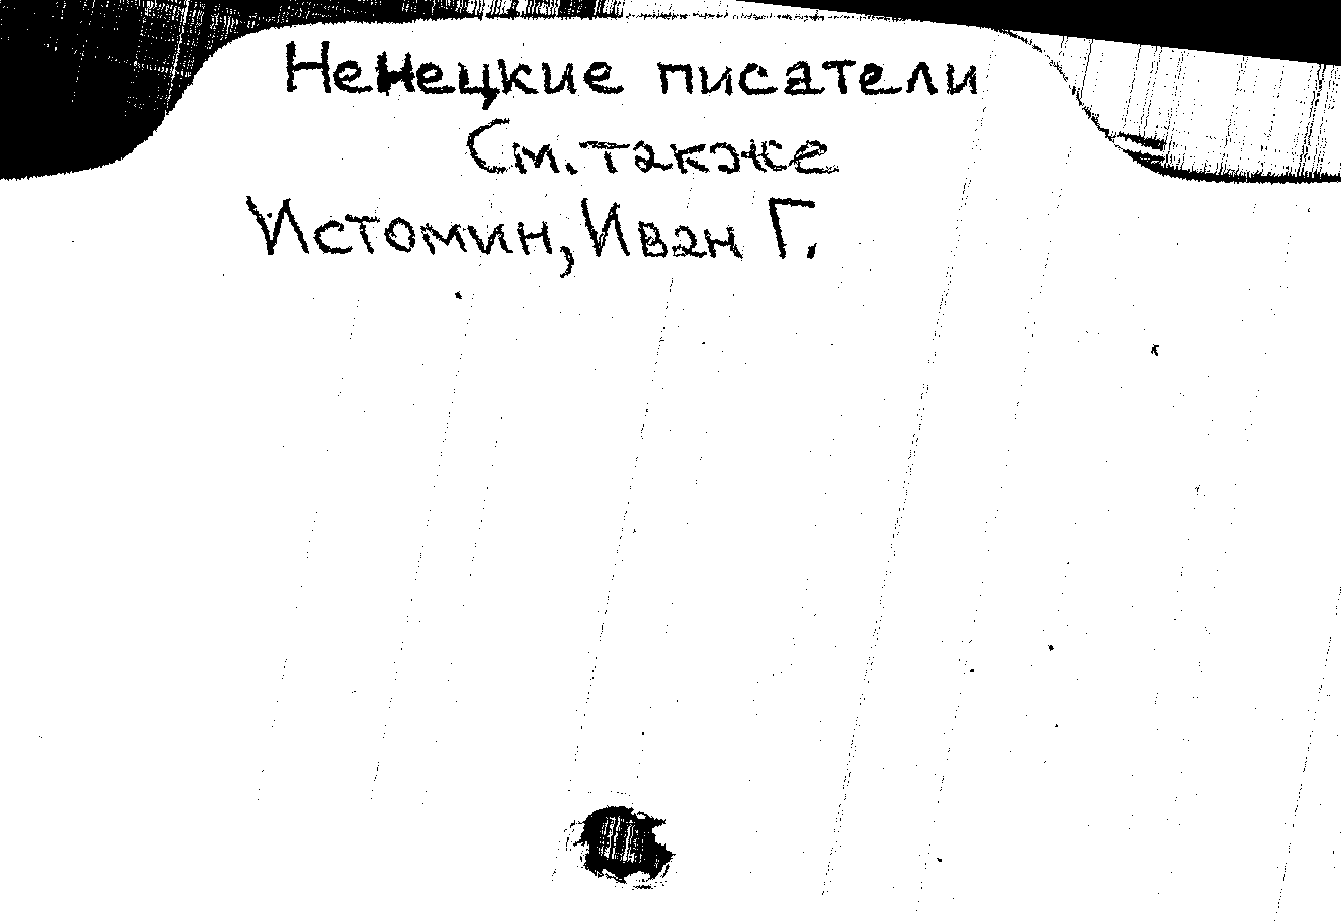 Ненецкие писатели
См. также
Истомин, Иван Г.